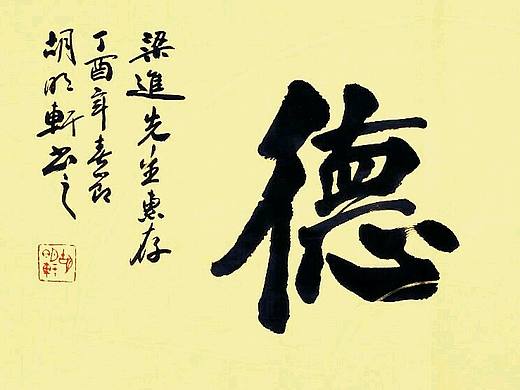 德
梁進先生惠存
丁酉年春節
胡明軒書之
胡明軒